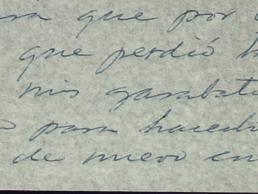 que por
que perdió
mis garabat
para hacerl
de nuevo en